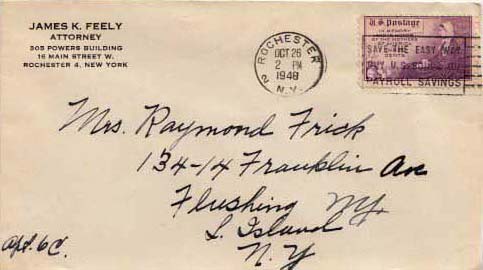 JAMES K. FEELY
ATTORNEY
305 POWERS BUILDING
16 MAIN STREET W.
ROCHESTER 4, NEW YORK
ROCHESTER 2
OCT 26
2 PM
1948
N.Y.
U.S. Postage
IN MEMORY
OF THE MOTHERS
SAVE THE EASY WAY
BUY U.S. BONDS
PAYROLL SAVINGS
Mrs. Raymond Frick
134-14 Franklin Ave
Flushing NY.
L. Island
N.Y
Apt. 6C.